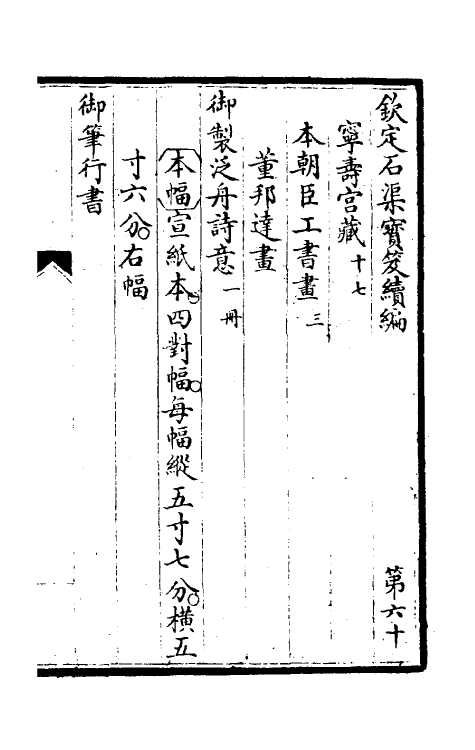 欽定石渠寳笈續編　第六十
寧壽宫藏十七
本朝臣工書畫三
董邦達畫
御製泛舟詩意一冊
本幅宣紙本四對幅每幅縱五寸七分橫五
寸六分右幅
御筆行書